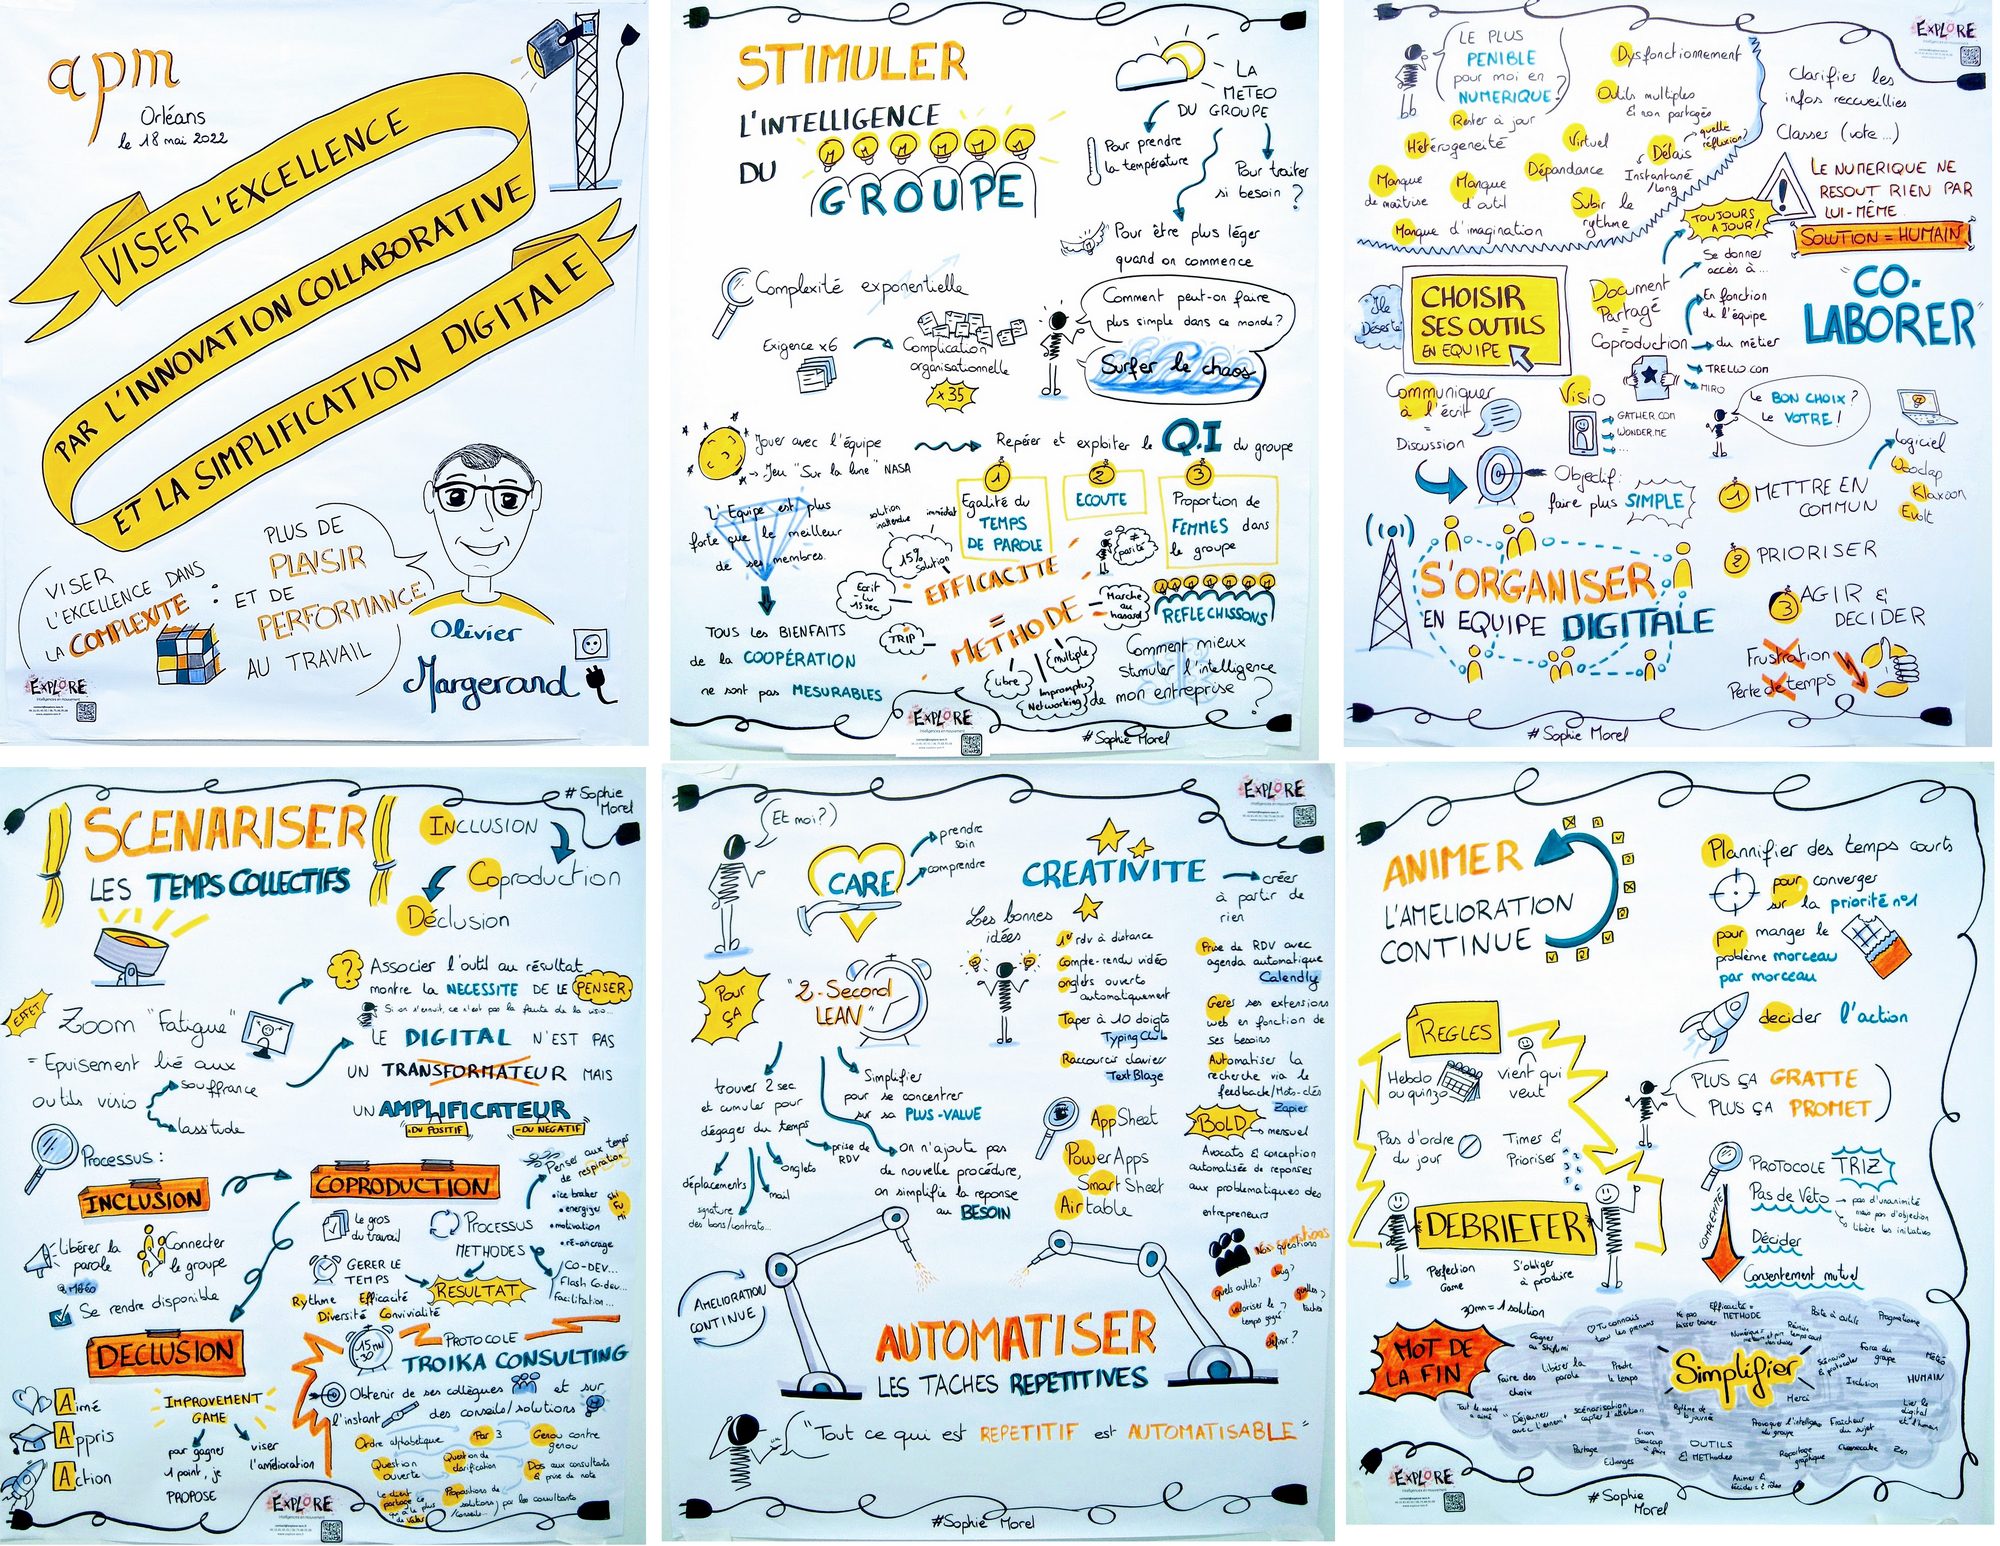 apm
Orléans
le 18 mai 2022
VISER L'EXCELLENCE
PAR L'INNOVATION COLLABORATIVE
ET LA SIMPLIFICATION DIGITALE
VISER
L'EXCELLENCE DANS
LA COMPLEXITE :
PLUS DE
PLAISIR
ET DE
PERFORMANCE
AU TRAVAIL
Olivier
Margerand
EXPLORE
STIMULER
L'INTELLIGENCE
DU
GROUPE
LA
METEO
DU GROUPE
Pour prendre
la température
Pour traiter
si besoin ?
Pour être plus léger
quand on commence
Complexité exponentielle
Exigence x6
Complication
organisationnelle
x35
Comment peut-on faire
plus simple dans ce monde?
Surfer le chaos
Jouer avec l'équipe
→ Jeu "Sur la lune" NASA
Repérer et exploiter le Q.I du groupe
1
Egalité du
TEMPS
DE PAROLE
2
ECOUTE
3
Proportion de
FEMMES dans
le groupe
L'Equipe est plus
forte que le meilleur
de ses membres.
TOUS les BIENFAITS
de la COOPÉRATION
ne sont pas MESURABLES
solution
inattendue
immédiat
15%
solution
Ecrit
15 sec
TRIP
EFFICACITE
=
METHODE
≠
parité
Marche
au
hasard
multiple
Libre
Impromptu
Networking
REFLECHISSONS
Comment mieux
stimuler l'intelligence
de mon entreprise ?
EXPLORE
#Sophie Morel
EXPLORE
LE PLUS
PENIBLE
pour moi en
NUMERIQUE?
Dysfonctionnement
Outils multiples
& non partagés
Rester à jour
Hétérogeneité
Virtuel
Délais
quelle
réflexion?
Instantané
/long
Dépendance
Manque
de maîtrise
Manque
d'outil
Subir le
rythme
Manque d'imagination
Clarifier les
infos recueillies
Classer (vote...)
!
LE NUMERIQUE NE
RESOUT RIEN PAR
LUI-MÊME
SOLUTION = HUMAIN
TOUJOURS
A JOUR!
Ile
Déserte
CHOISIR
SES OUTILS
EN EQUIPE
Document
Partagé
=
Coproduction
Se donner
accès à...
En fonction
de l'équipe
du métier
TRELLO.COM
MIRO
"CO-
LABORER"
Communiquer
à l'écrit
=
Discussion
Visio
GATHER.COM
WONDER.ME
...
Le BON CHOIX?
Le VOTRE!
Objectif:
faire plus SIMPLE
logiciel
Wooclap
Klaxoon
Evolt
1 METTRE EN
COMMUN
2 PRIORISER
3 AGIR &
DECIDER
Frustration
Perte de temps
S'ORGANISER
EN EQUIPE DIGITALE
#Sophie Morel
SCENARISER
LES TEMPS COLLECTIFS
#Sophie
Morel
INCLUSION
Coproduction
Déclusion
EFFET
Zoom "Fatigue"
= Epuisement lié aux
outils visio
souffrance
lassitude
?
Associer l'outil au résultat
montre la NECESSITE DE LE PENSER
Si on s'ennuit, ce n'est pas la faute de la visio...
LE DIGITAL N'EST PAS
UN TRANSFORMATEUR MAIS
UN AMPLIFICATEUR
+ DU POSITIF
- DU NEGATIF
Processus :
INCLUSION
COPRODUCTION
Penser aux temps
de respiration
• ice breaker
• energizer
• motivation
• ré-ancrage
Libérer la
parole
Connecter
le groupe
Se rendre disponible
le gros
du travail
PROCESSUS
METHODES
GERER LE
TEMPS
RESULTAT
CO-DEV...
Flash Co-dev...
Facilitation...
Rythme Efficacité
Diversité Convivialité
DECLUSION
15 mn
-30
PROTOCOLE
TROIKA CONSULTING
Obtenir de ses collègues et sur
l'instant des conseils/solutions
Aimé
Appris
Action
IMPROVEMENT
GAME
pour gagner
1 point, je
PROPOSE
viser
l'amélioration
Ordre alphabétique
Par 3
Genou contre
genou
Question
Ouverte
Question de
clarification
Dos aux consultants
& prise de note
Propositions de
solutions/ par les consultants
EXPLORE
EXPLORE
Et moi?
CARE
prendre
soin
comprendre
CREATIVITE
créer
à partir de
rien
POUR
ÇA
"2-Second
LEAN"
Les bonnes
idées
1er rdv à distance
compte-rendu vidéo
onglets ouverts
automatiquement
Taper à 10 doigts
TypingClub
Raccourcis clavier
TextBlaze
Prise de RDV avec
agenda automatique
Calendly
Gérer ses extensions
web en fonction de
ses besoins
Automatiser la
recherche via le
feedback/Mots-clés
Zapier
trouver 2 sec
et cumuler pour
dégager du temps
Simplifier
pour se concentrer
sur sa PLUS-VALUE
prise de
RDV
onglets
mail
déplacements
signature
des bons/contrats...
on n'ajoute pas
de nouvelle procédure,
on simplifie la reponse
au BESOIN
AppSheet
PowerApps
SmartSheet
Airtable
BOLD
mensuel
Avocats & conception
automatisée de reponses
aux problematiques des
entrepreneurs
AMELIORATION
CONTINUE
AUTOMATISER
LES TACHES REPETITIVES
Nos questions
bug?
quels outils?
valoriser le
temps gagné?
quelles
taches?
"Tout ce qui est REPETITIF est AUTOMATISABLE"
#Sophie Morel
ANIMER
L'AMELIORATION
CONTINUE
Plannifier des temps courts
pour converger
sur la priorité n°1
pour manger le
problème morceau
par morceau
decider l'action
REGLES
Hebdo
ou quinzo
vient qui
veut
Pas d'ordre
du jour
Times &
Prioriser
PLUS ÇA GRATTE
PLUS ÇA PROMET
PROTOCOLE TRIZ
Pas de Véto
→ pas d'unanimité
mais pas d'objection
libère les initiatives
COMPLEXITE
Décider
Consentement mutuel
DEBRIEFER
Perfection
Game
S'obliger
à produire
30mn = 1 solution
MOT DE
LA FIN
Simplifier
Efficacité =
METHODE
Boîte à outils
Pragmatisme
Libérer la
parole
Prendre
le temps
Faire des
choix
Force du
groupe
Météo
Inclusion
HUMAIN
Merci
Lier le
digital
et l'humain
Rythme de
la journée
Fraîcheur
du sujet
Partage
Echanges
OUTILS
& METHodes
Reportage
graphique
Cheesecake
Zen
EXPLORE
#Sophie
Morel